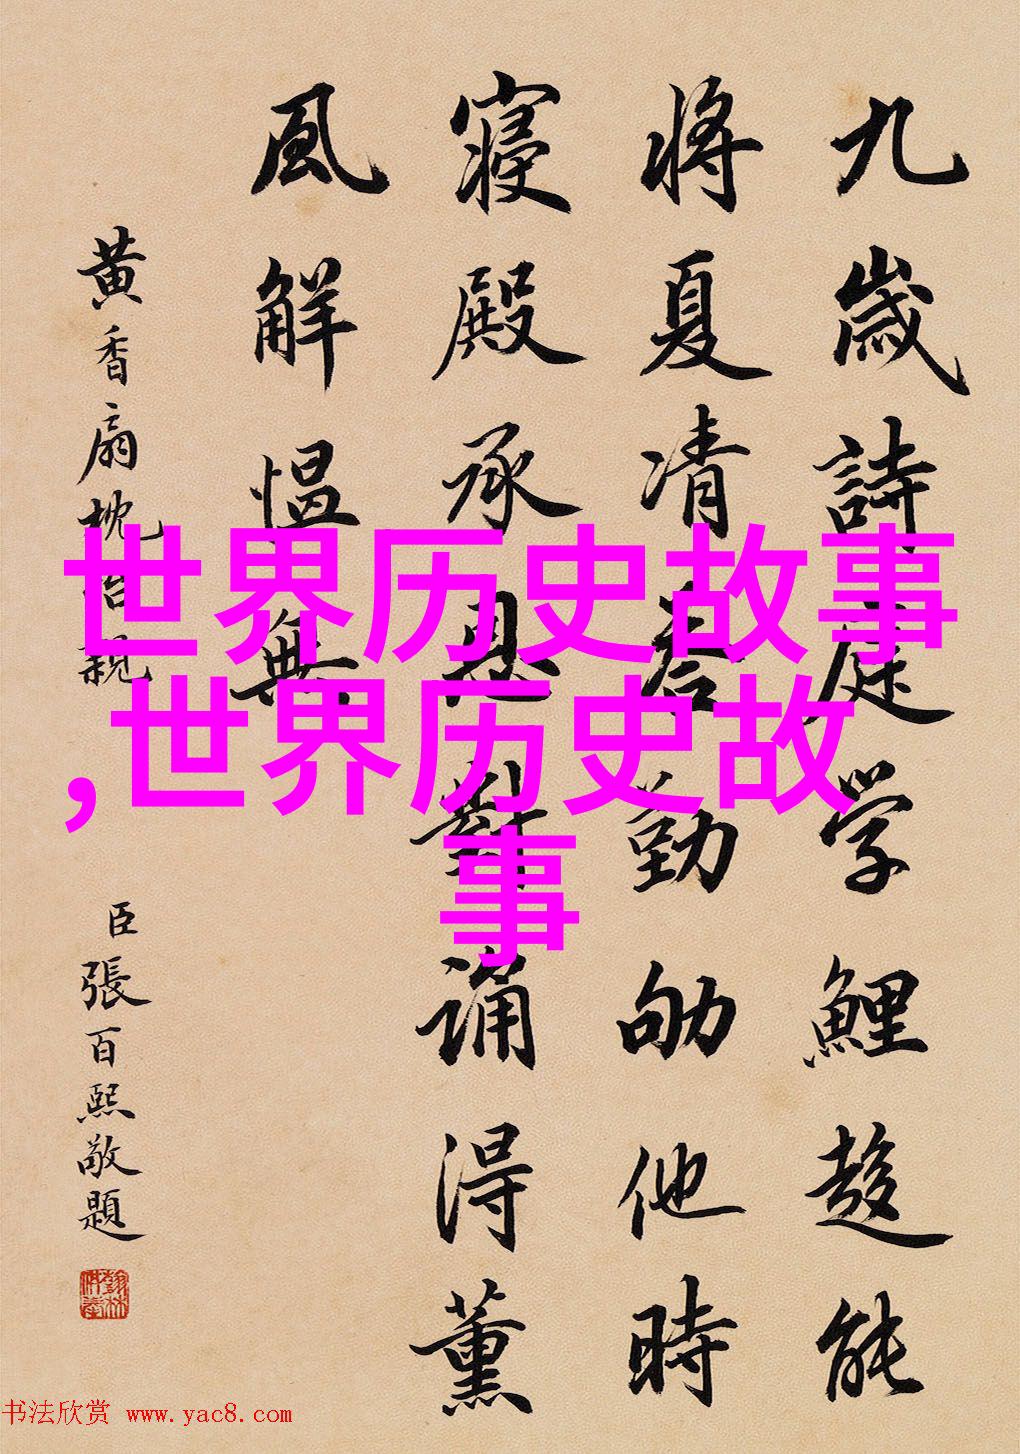 九歲詩庭学鯉趍能
將夏凊勤劬他時
寢殿承恩對誦得薰
風解愠無
黄香扇枕怡親
臣張百熙敬題
世界历史故事
,世界历史故
事
书法欣赏 www.yac8.com